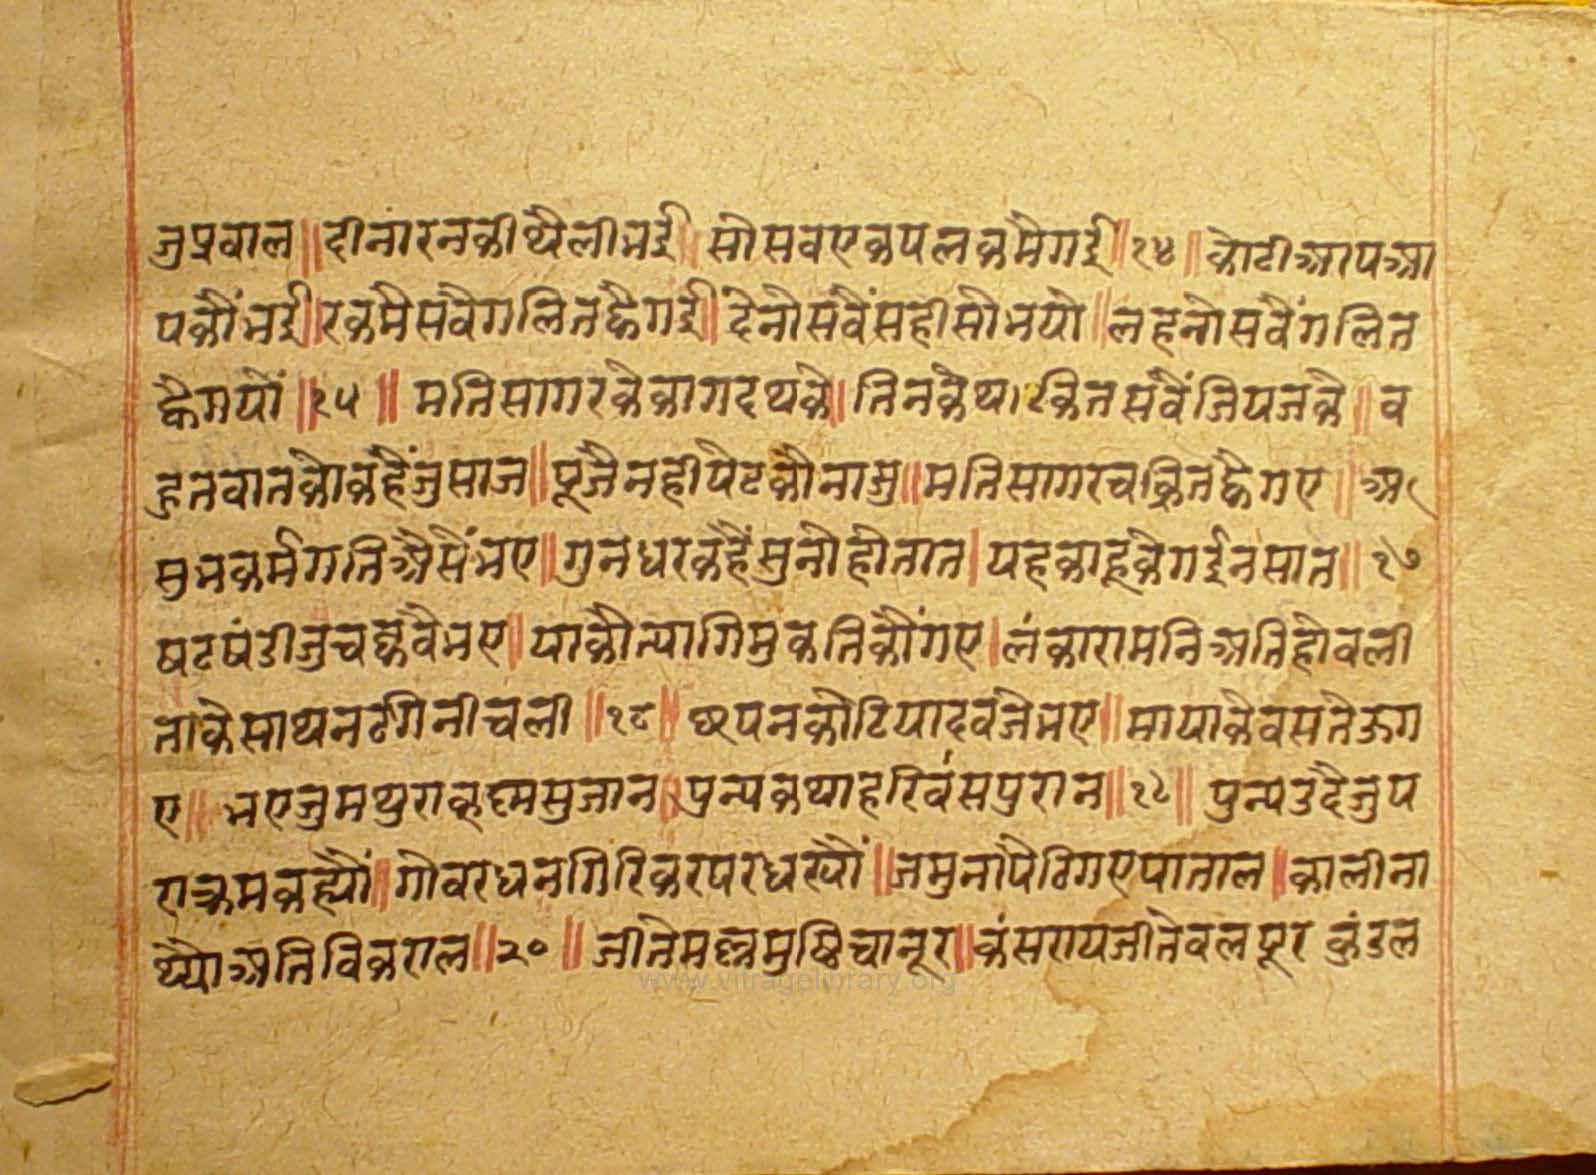 जुप्रवाल॥दीनारनकीथैलीभई॥सोसवएकपलकमैगई॥१४॥कोटीआपआ
पकौंभई॥रकमैसवैगलितह्वैगई॥देनोसवैंसहीसोभयो॥लहनोसवैंगलित
ह्वैगयों॥१५॥मतिसागरकेकागदथके॥तिनकेथाटकितसवैंजियजके॥व
हुतवातकोकहैंजुसाज॥पूजैनहीपेटकौनाजु॥मतिसागरचक्रितह्वैगए॥अ
सुभकर्मगतिअैसैंभए॥गुनधरकहैंसुनोहोतात।यहकाहूकेगईनसात॥१७
षटषंडीजुचक्कवैभए॥याकौत्यागिमुकतिकौंगए।लंकारामनिअतिहोवली
ताकेसाथनठगिनीचली॥१८॥छपनकोटियादवजेभए॥मायाकेवसतेऊग
ए॥भएजुमथुराकृष्मसुजान॥पुन्यकथाहरिवंसपुरान॥१९॥पुन्यउदैजुप
राक्रमकह्यौं॥गोवरधनगिरिकरपरधर्यौं॥जमुनापैठिगएपाताल॥कालीना
थ्यौअतिविकराल॥२०॥जीतेमल्लमुष्टिचानूर॥कंसरायजीतेवलपूर कुंडल
www.villagelibrary.org